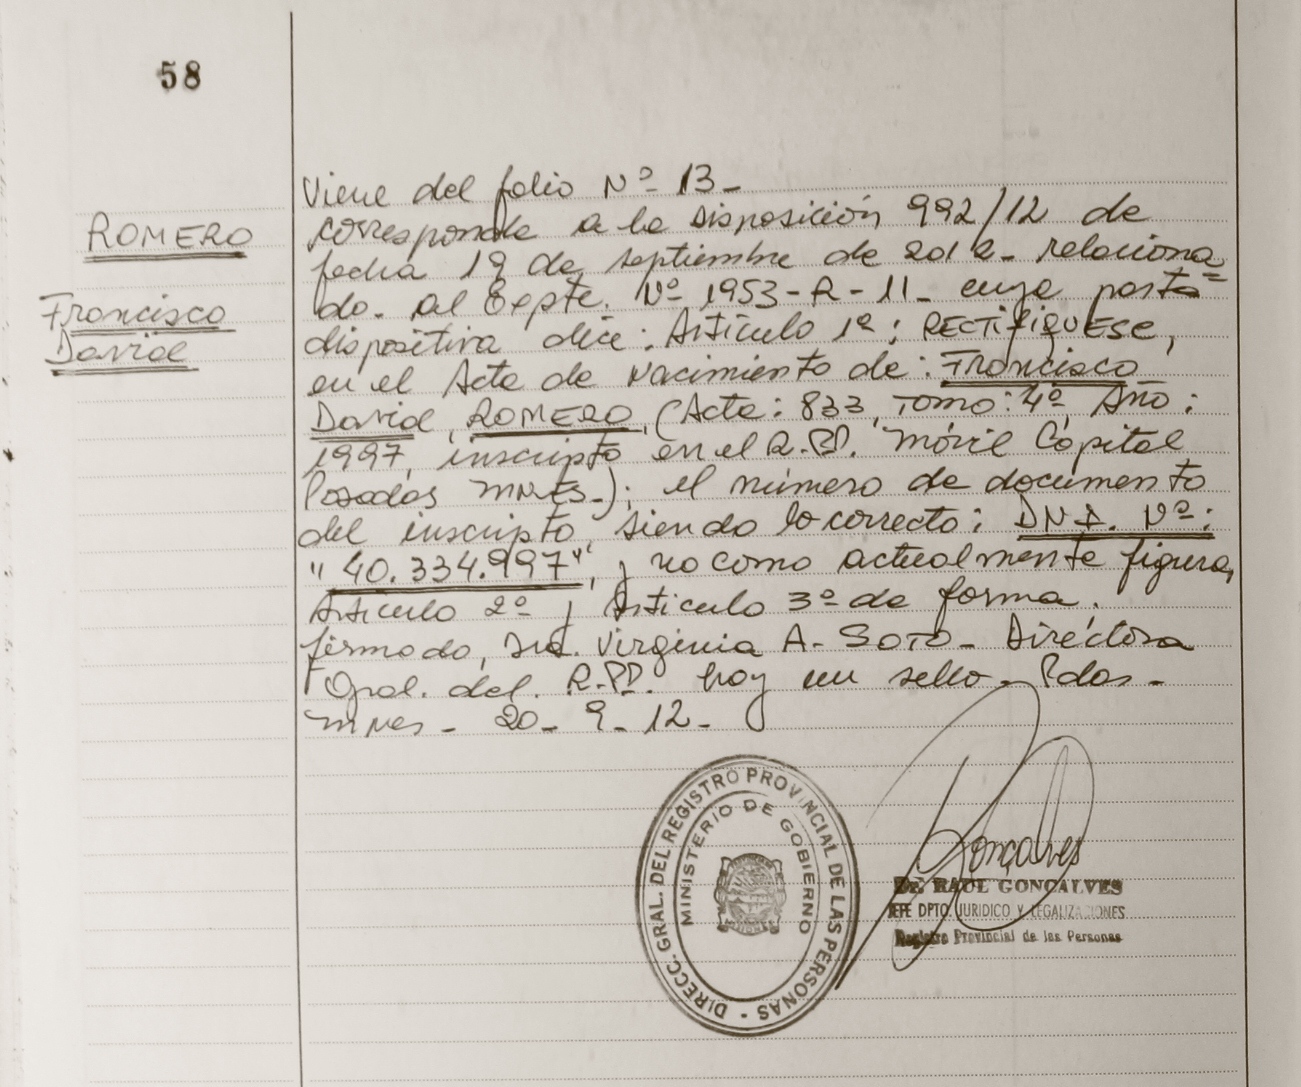 58
ROMERO
Francisco
David
Viene del folio Nº 13-
corresponde a la disposición 992/12 de
fecha 19 de septiembre de 2012- relaciona
do. al Expte. Nº 1953-R-11- cuya parte
dispositiva dice: Artículo 1º: RECTIFIQUESE,
en el Acta de Nacimiento de: Francisco
David, ROMERO, (Acta: 833, Tomo: 4º, Año:
1997, inscripto en el R.PP. Móvil Capital
Posadas MNES.); el número de documento
del inscripto, siendo lo correcto: DNI. Nº:
"40.334.997", y no como actualmente figura,
Artículo 2º y Artículo 3º de forma.
firmado, Sra. Virginia A. SOTO- Directora
Gral. del. R.PP. hay un sello- Pdas-
MNes- 20-9-12-
DIRECC. GRAL. DEL REGISTRO PROVINCIAL DE LAS PERSONAS -
MINISTERIO DE GOBIERNO
Gonçalves
Dr. RAUL GONCALVES
JEFE DPTO. JURIDICO Y LEGALIZACIONES
Registro Provincial de las Personas